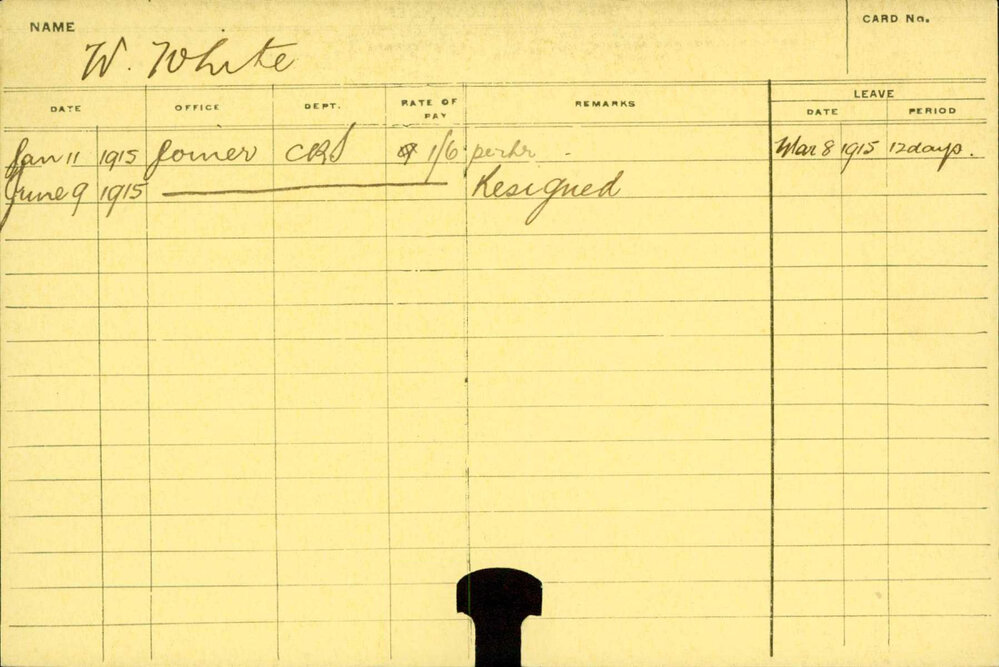 NAME
W. White
CARD No.
DATE OFFICE DEPT. RATE OF PAY REMARKS LEAVE
DATE PERIOD
Jan 11 1915 Joiner 1/6 per hr. Mar 8 1915 12 days.
June 9 1915 Resigned